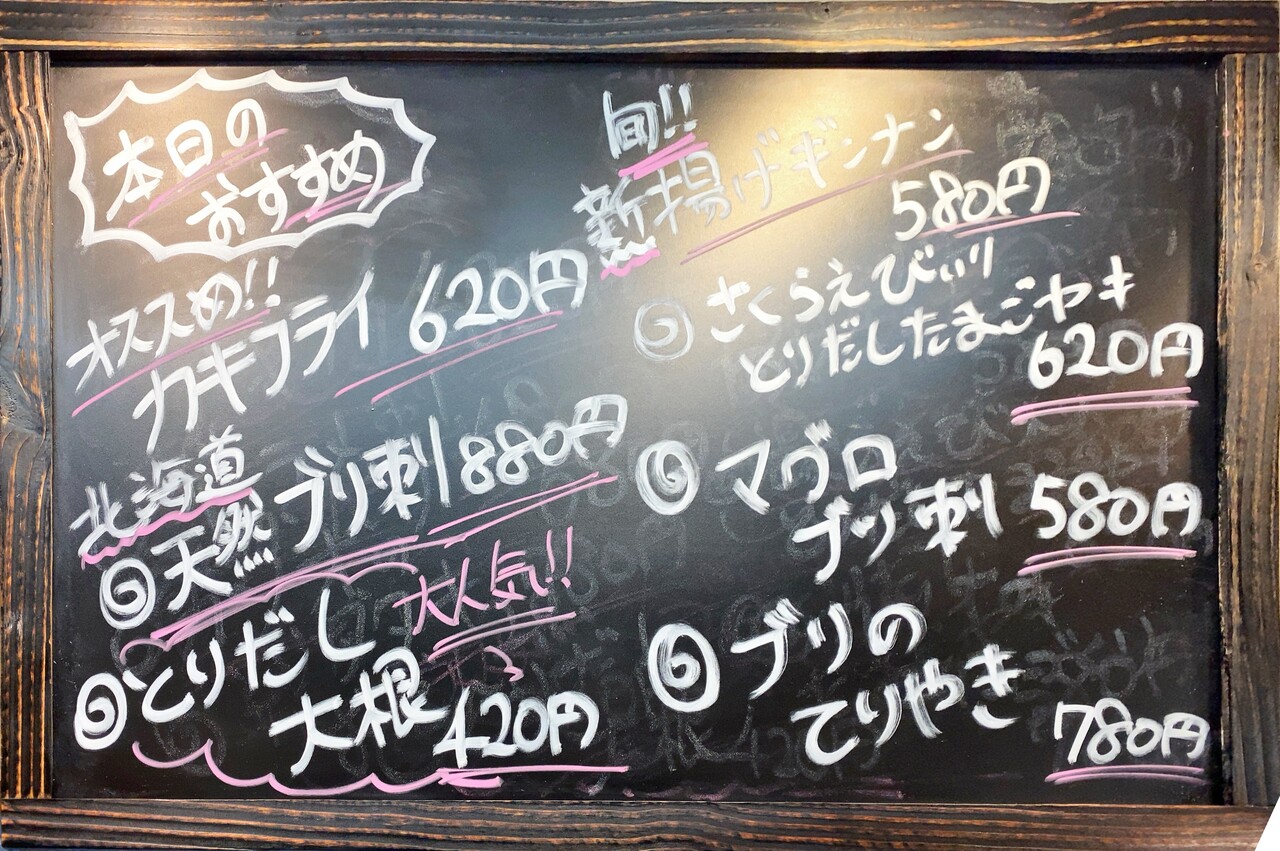 本日の
おすすめ
オススめ!!
カキフライ 620円
北海道
天然 ブリ刺 880円
大人気!!
とりだし
大根 420円
旬!!
新揚げギンナン
580円
さくらえびいり
とりだしたまごヤキ
620円
マグロ
ブツ刺 580円
ブリの
てりやき
780円